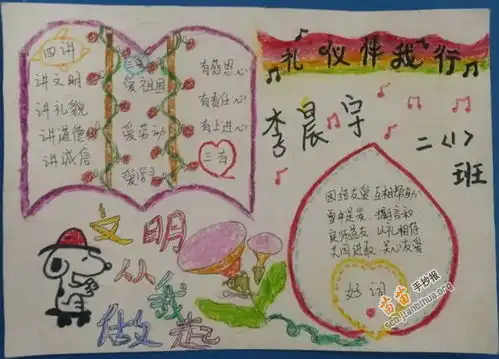 四讲
讲文明
讲礼貌
讲道德
讲诚信
三爱
爱祖国
爱劳动
爱学习
有感恩心
有责任心
有上进心
三有
礼仪伴我行
李晨宇
二<1>
班
团结友爱 互相帮助
良师益友 以礼相待
关心友爱
好词
文明
从我
做起
苗苗手抄报